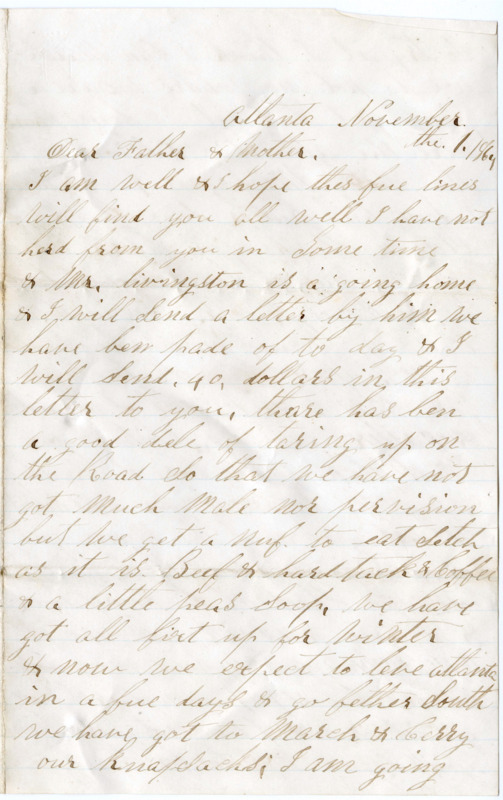 Atlanta November
the. 1. 1864
Dear Father & Mother.
I am well & I hope thes fue lines
will find you all well I have not
herd from you in Some time
& Mr. livingston is a going home
& I will Send a letter by him we
have ben pade of to day & I
will Send. 40, dollars in this
letter to you, thare has ben
a good dele of taring up on
the Road So that we have not
got much Male nor pervision
but we get a nuf to eat Sitch
as it is Beef & hard tack & Coffee
& a little peas Soop, we have
got all fixt up for Winter
& now we expect to leve atlanta
in a fue days & go fether South
we have got to March & Cerry
our KnapSacks; I am going